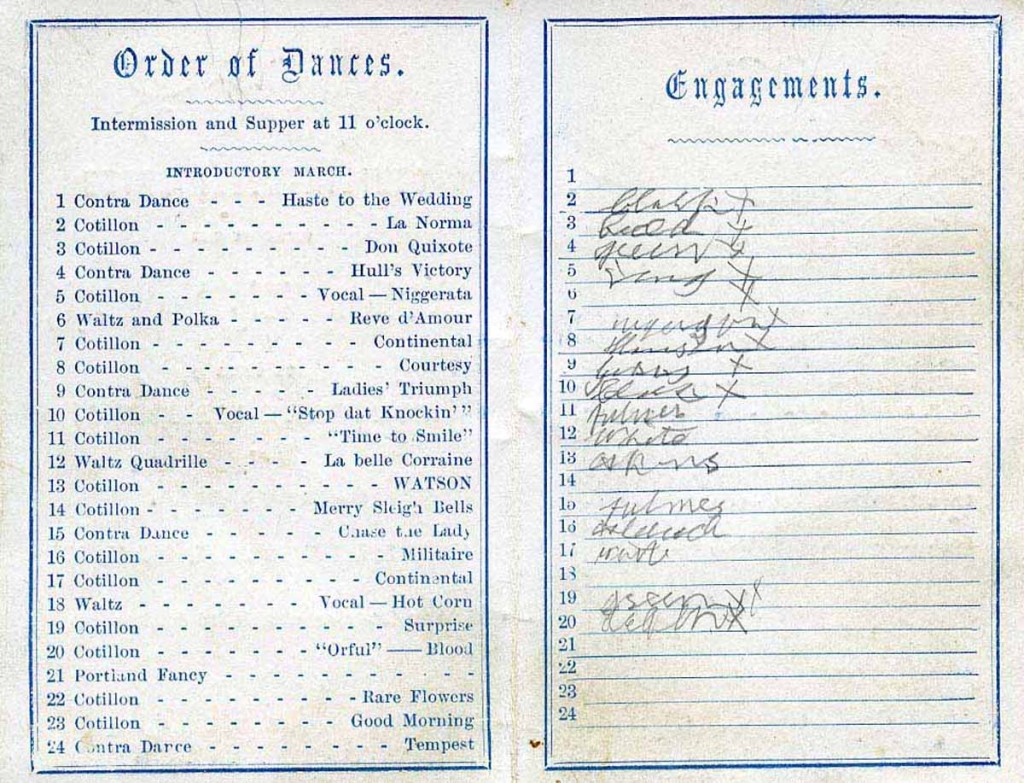 Order of Dances.
Intermission and Supper at 11 o'clock.
INTRODUCTORY MARCH.
1 Contra Dance - - - Haste to the Wedding
2 Cotillon - - - - - - - - - - La Norma
3 Cotillon - - - - - - - - - Don Quixote
4 Contra Dance - - - - - - Hull's Victory
5 Cotillon - - - - - - - Vocal — Niggerata
6 Waltz and Polka - - - - - Reve d'Amour
7 Cotillon - - - - - - - - - Continental
8 Cotillon - - - - - - - - - - Courtesy
9 Contra Dance - - - - - Ladies' Triumph
10 Cotillon - - Vocal — "Stop dat Knockin'"
11 Cotillon - - - - - - - "Time to Smile"
12 Waltz Quadrille - - - - La belle Corraine
13 Cotillon - - - - - - - - - WATSON
14 Cotillon - - - - - - - Merry Sleigh Bells
15 Contra Dance - - - - - Chase the Lady
16 Cotillon - - - - - - - - - Militaire
17 Cotillon - - - - - - - - - Continental
18 Waltz - - - - - - - Vocal — Hot Corn
19 Cotillon - - - - - - - - - Surprise
20 Cotillon - - - - - - "Orful" —— Blood
21 Portland Fancy - - - - - - - - -
22 Cotillon - - - - - - - - Rare Flowers
23 Cotillon - - - - - - - Good Morning
24 Contra Dance - - - - - - - Tempest
Engagements.
1
2 X
3 X
4 Green X
5 X
6 X
7 X
8 X
9 X
10 X
11 Fulmer
12 White
13
14
15 Fulmer
16
17
18
19
20
21
22
23
24